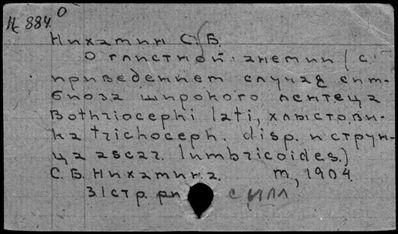 Н 884 0
Никатин С. Б.
О глистной анемии (с
приведением случая сим-
биоза широкого лентеца
Bothriocephi lati, хлыстови-
ка trichoceph. disp. и струн-
ца ascar. lumbricoides.)
С. Б. Никатина. т, 1904.
31 стр. с илл